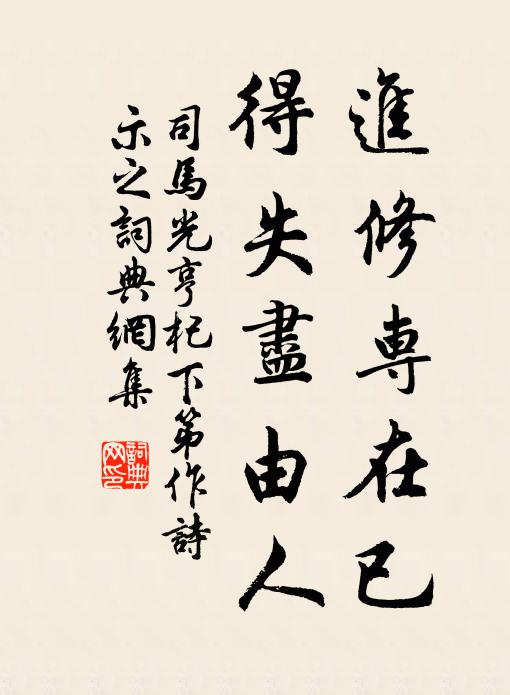 進修専在已
得失盡由人
司馬光亨杞下第作詩
示之詞典網集
詞典
网印